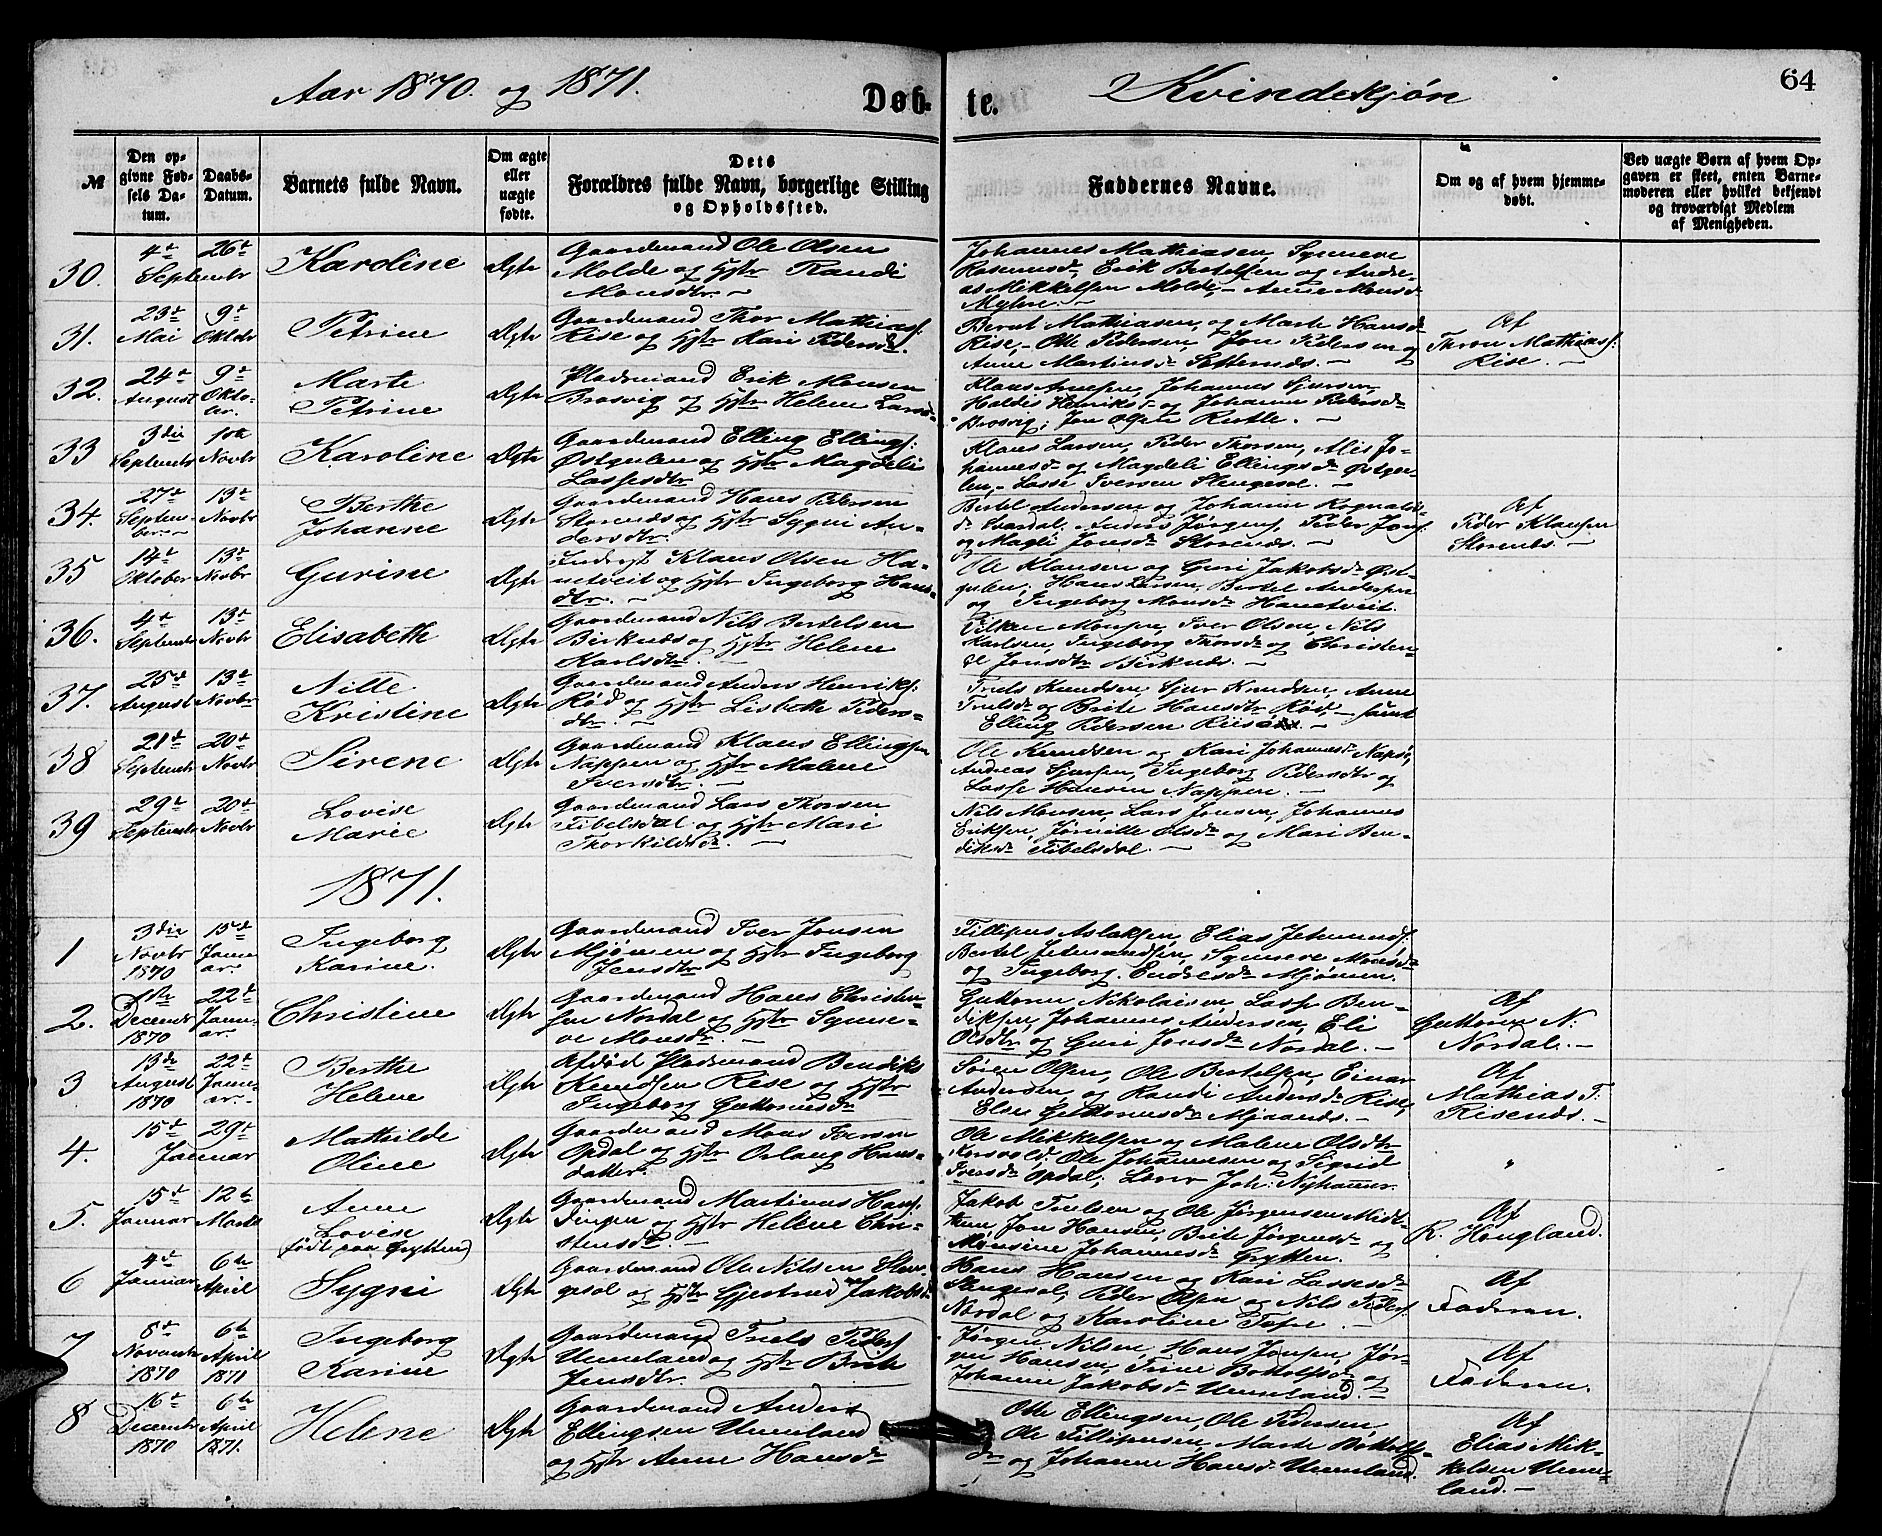 Aar 1870. og 1871.
Døb-
te.
Kvindekjøn
64
№
Den op-
givne Fød-
sels Da-
tum.
Daabs-
Datum.
Barnets fulde Navn.
Om ægte
eller
uægte
fødte.
Dets
Forældres fulde Navn, borgerlige Stilling
og Opholdssted.
Faddernes Navne.
Om og af hvem hjemme-
døbt.
Ved uægte Børn af hvem Op-
gaven er skeet, enten Barne-
moderen eller hvilket bekjendt
og troværdigt Medlem
af Menigheden.
30.
4de 26de
Septembr
Karoline
Ægte
Gaardmand Ole Olsen
Molde og Hstr Randi
Monsdtr. —
Johannes Mathiasen, Synneve
Rasmusdr, Erik Bertelsen og Andre-
as Mikkelsen Molde, — Anne Monsdr
Myhre. —
31.
23de
Mai
9de
Oktobr
Petrine
Ægte
Gaardmand Thor Mathiass:
Rise og Hstr Kari Pedersdr.
Bernt Mathiasen, og Marte Hansdr
Rise, — Ole Pedersen, Jon Pedersen og
Anne Martinusdr Setternes. —
Af
Thron Mathiass:
Rise. —
32.
24de
August
9de
Okto-
ber.
Marte
Petrine
Ægte
Pladsmand Erik Monsen
Brosvig og Hstr Helene Larsd-
Klaus Arnesen, Johannes Sjursen,
Haldis Henriksdr og Johanne Pedersdr
Brosvig, Jon Olsen Restle. —
33
3die
Septembr
1ste
Novbr
Karoline
Ægte
Gaardmand Elling Ellings:
Østgulen og Hstr Magdeli
Lassesdtr
Klaus Larsen, Peder Thorsen, Alis Jo-
hannesdr og Magdeli Ellingsdr Østgu-
len, — Lasse Iversen Slengesol. —
34.
27de
Septem-
ber. —
13de
Novbr
Berthe
Johanne
Ægte
Gaardmand Hans Petersen
Storenes og Hstr Sygni An-
dersdtr. —
Bertel Andersen og Johanne Rognalds-
dr Svardal, Anders Jørgens, Peder Jons:
og Magli Jonsdr Storenes. —
Af
Peder Klausen
Storenes. —
35
14de
Oktober
13de
Novbr
Gurine
Ægte
Inderst Klaus Olsen Ha-
netveit og Hstr Ingeborg Hans-
dtr. —
Ole Klausen og Guri Jakobsdr Øst-
gulen, Hans Larsen, Bertel Andersen
og Ingeborg Monsdr Hanetveit.
36.
4de
Septembr
13de
Novbr
Elisabeth
Ægte
Gaardmand Nils Bertelsen
Birknes og Hstr Helene
Karlsdtr. —
Monsen, Iver Olsen, Nils
Karlsen, Ingeborg Thorsdr og Christen-
se Jonsdtr Birknes. —
37.
25de
August
13de
Novbr
Nille
Kristine
Ægte
Gaardmand Anders Henriks:
Rød og Hstr Lisbeth Peders-
dtr. —
Truls Knudsen, Sjur Knudsen, Anne
Trulsdr og Brite Hansdtr Rød, — samt
Elling Pedersen
38
21de
Septembr
20de
Novbr
Sirene
Ægte
Gaardmand Klaus Ellingsen
Nappen og Hstr Malene
Iversdtr. —
Ole Knudsen og Kari Johannesdr Napsø,
Andreas Sjursen, Ingeborg Pedersdtr og
Lasse Hansen Nappen. —
39
29de
Septembr
20de
Novbr
Lovise
Marie
Ægte
Gaardmand Lars Thorsen
Fibelsdal og Hstr Mari
Thorkildsdr. —
Nils Monsen, Lars Jonsen, Johannes
Eriksen, Jørnille Olsdr og Mari Ben-
diksdr Fibelsdal. —
1871.
1
3die
Novbr
1870
15de
Janu-
ar.
Ingeborg
Karine.
Ægte
Gaardmand Iver Jonsen
Mjømen og Hstr Ingeborg
Jensdtr
Fillipus Aslaksen, Elias Jetmunds:
Bertel Jetmundsen, Synneve Monsdr
og Ingeborg Endresdr Mjømen.
2.
1ste
Decembr
1870
22de
Janu-
ar.
Christine
Ægte
Gaardmand Hans Christen-
sen Nordal og Hstr Synne-
ve Monsdr. —
Guttorm Nikolaisen, Lasse Ben-
diksen, Johannes Andersen, Eli
Olsdtr og Guri Jonsdr Nordal. —
Af
Guttorm N:
Nordal. —
3
13de
August
1870
22de
Janu-
ar. —
Berthe
Helene
Ægte
Afdød Pladsmand Bendik
Knudsen Rise og Hstr
Ingeborg Guttormsdr
Søren Olsen, Ole Bertelsen, Einar
Andersen, og Randi Andersdr Rise,
Else Guttormsdr Mjaanes. —
Af
Mathias T.
Risenes. —
4.
15de 29de
Januar
Mathilde
Oline
Ægte
Gaardmand Mons Iversen
Opdal og Hstr Orlaug Hans-
datter.
Ole Mikkelsen og Malene Olsdtr
Ole Johannesen og Sigrid
Iversdr Opdal; Lasse Joh: Nyhammer.
"
5.
15de
Januar
12te
Marts
Anne
Lovise
(født paa Grytten)
Ægte
Gaardmand Martinus Hans:
Dingen og Hstr Helene Chri-
stensdtr. —
Jakob Trulsen og Ole Jørgensen Midt-
tun, Jon Hansen, Brite Jørgensdr og
Monsine Johannesdr Grytten.
Af
R. Hougland.
6
4de
Januar
6te
April
Sygni
Ægte
Gaardmand Ole Nilsen Slen-
gesol og Hstr Gjertrud Jakobsdr
Hans Hansen og Kari Lassesdr
Slengesol, Peder Olsen og Nils Peders:
Nordal og Karoline —
Af
Faderen.
7
8de
Novembr
1870
6te
April
1871
Ingeborg
Karine
Ægte
Gaardmand Truls Peders:
Unneland og Hstr Brite
Jensdtr.
Jørgen Nilsen, Hans Jonsen, Jør-
gen Hansen, Trine Bottolfsdr og
Johanne Jakobsdr Unneland. —
Af
Faderen.
8
16de
Decembr
1870
6te
April
1871.
Helene
Ægte
Gaardmand Anders
Ellingsen Unneland
og Hstr Anne Hansdr
Otte Ellingsen, Ole Pedersen,
Ole Fillipusen, Marte Bottolfs-
dr og Johanne Hansdr Unneland.
Af
Elias Mik-
kelsen Unne-
land. —